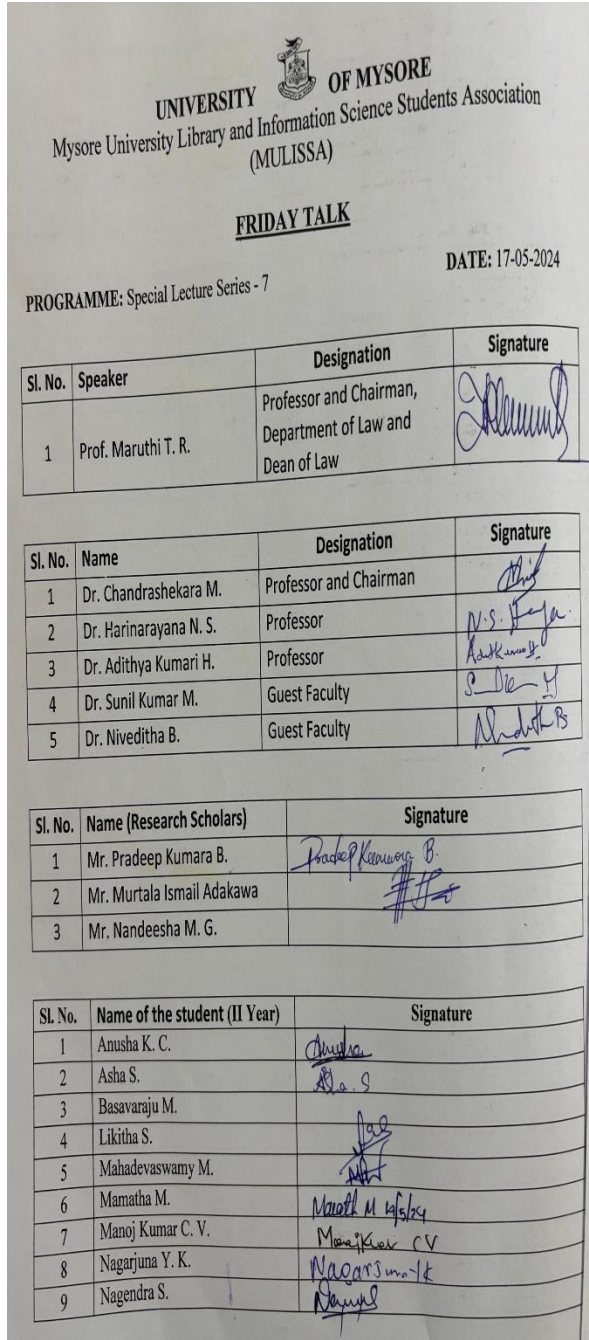 UNIVERSITY OF MYSORE
Mysore University Library and Information Science Students Association
(MULISSA)
FRIDAY TALK
DATE: 17-05-2024
PROGRAMME: Special Lecture Series - 7
Sl. No. Speaker Designation Signature
1 Prof. Maruthi T. R. Professor and Chairman,
Department of Law and
Dean of Law
Sl. No. Name Designation Signature
1 Dr. Chandrashekara M. Professor and Chairman
2 Dr. Harinarayana N. S. Professor
3 Dr. Adithya Kumari H. Professor
4 Dr. Sunil Kumar M. Guest Faculty
5 Dr. Niveditha B. Guest Faculty
Sl. No. Name (Research Scholars) Signature
1 Mr. Pradeep Kumara B. Pradeep Kumara B.
2 Mr. Murtala Ismail Adakawa
3 Mr. Nandeesha M. G.
Sl. No. Name of the student (II Year) Signature
1 Anusha K. C. Anusha
2 Asha S. Asha. S
3 Basavaraju M.
4 Likitha S.
5 Mahadevaswamy M.
6 Mamatha M.
7 Manoj Kumar C. V. CV
8 Nagarjuna Y. K. Nagarjuna YK
9 Nagendra S.